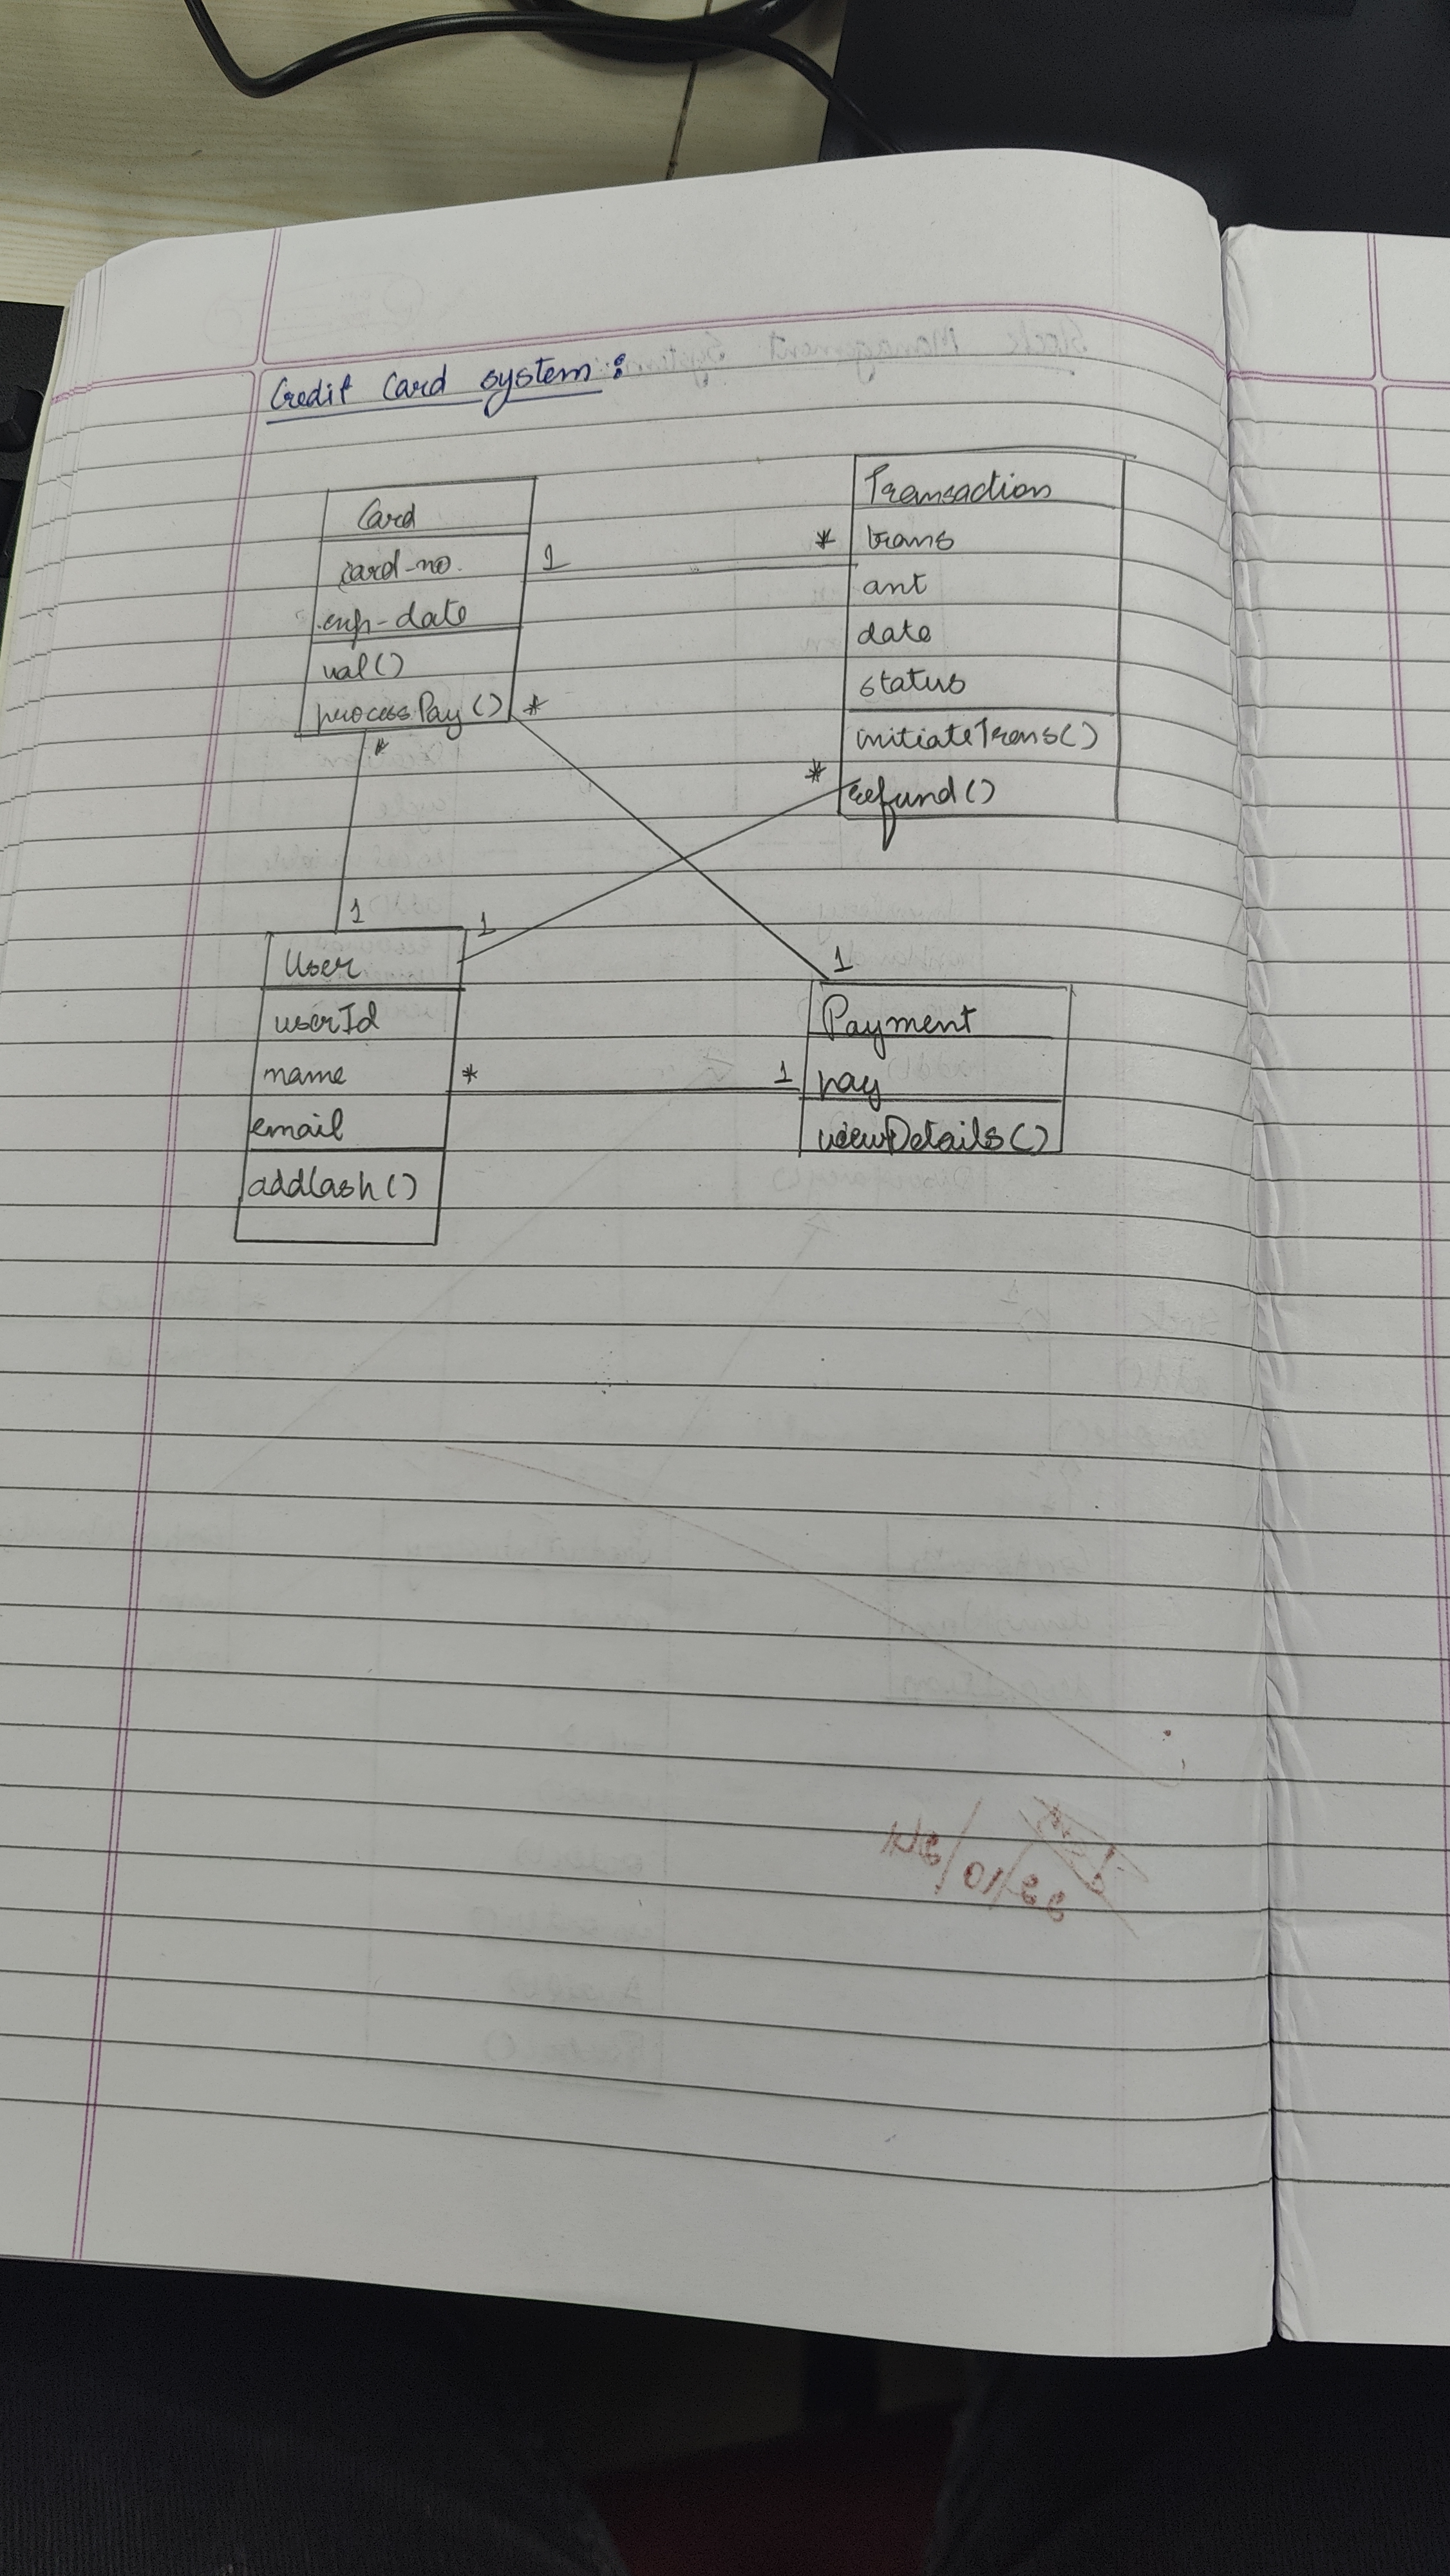 Credit Card system:
Card
card-no.
exp-date
val()
processPay()
1
*
Transaction
trans
amt
date
status
initiateTrans()
refund()
*
*
*
1
1
User
userId
name
email
addCash()
*
1
1
Payment
pay
viewDetails()